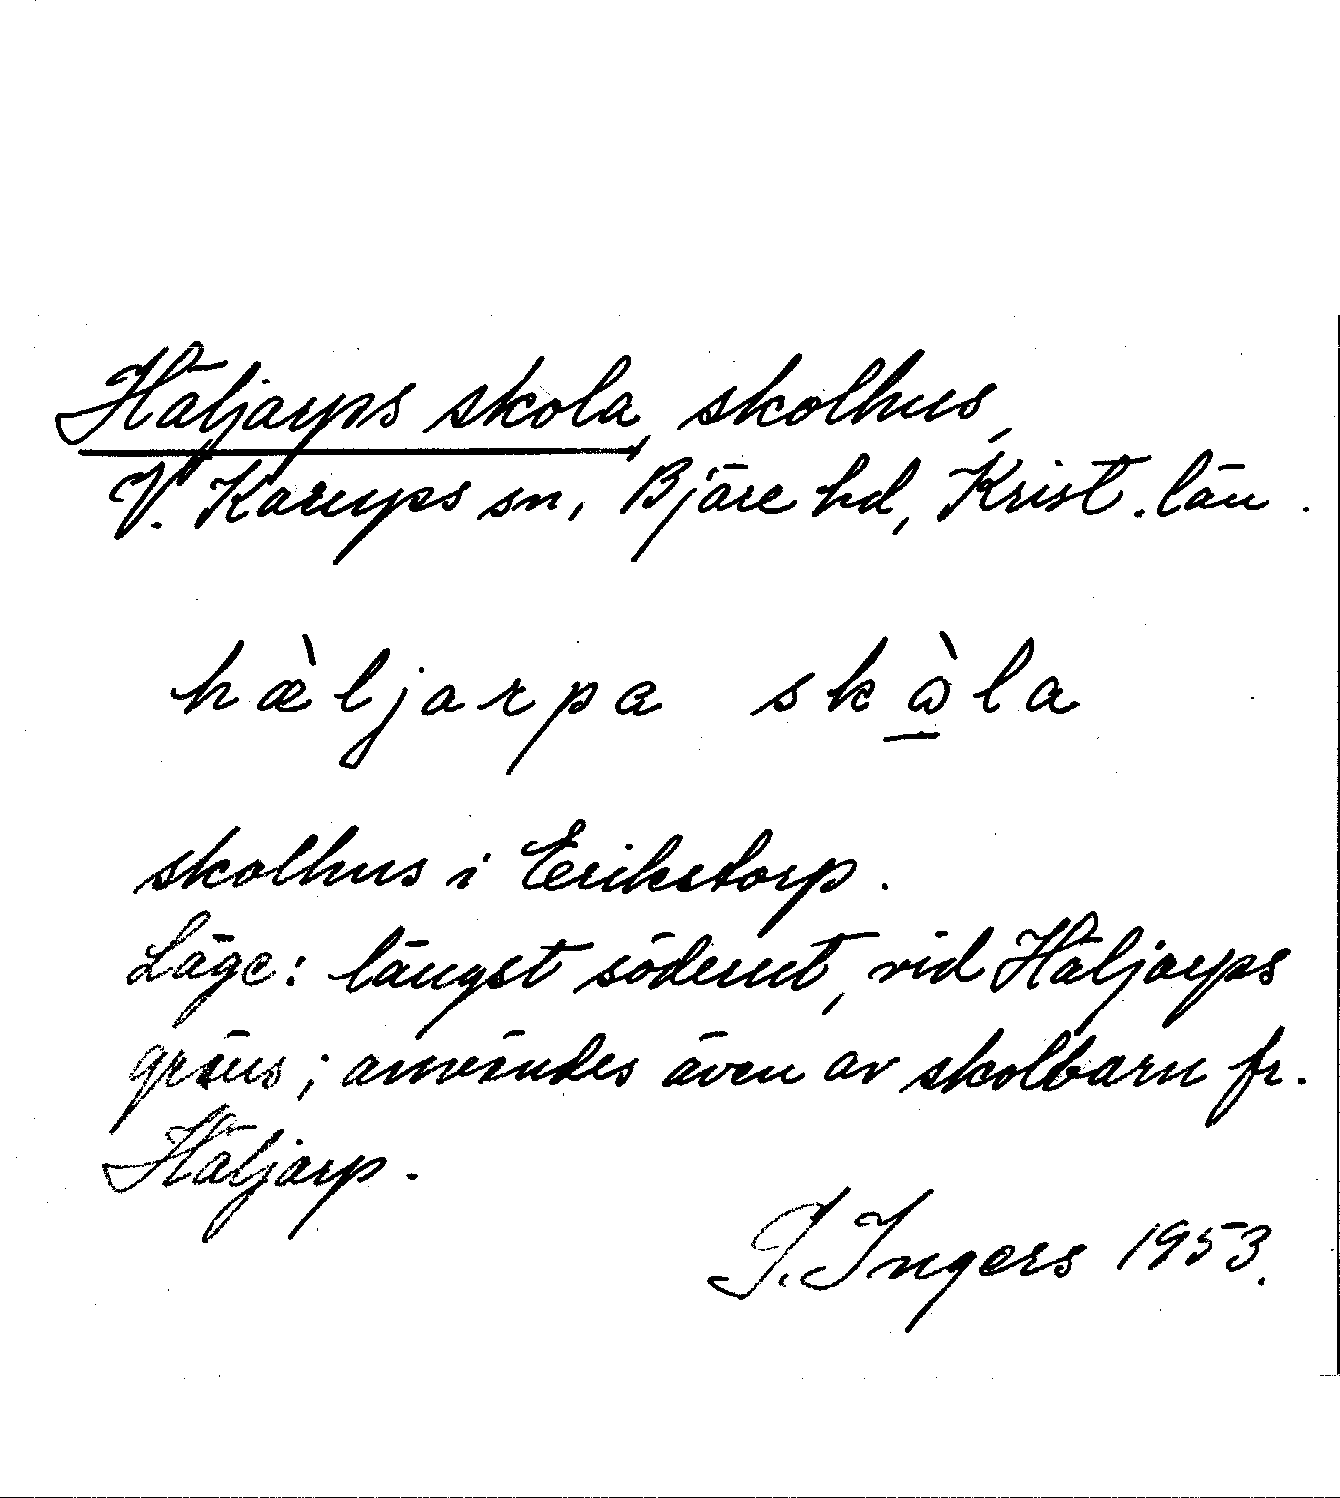 Häljarps skola, skolhus,
V. Karups sn, Bjäre hd, Krist. län.
hæ̀ljarpa skὼ̲la
skolhus i Erikstorp.
Läge: längst söderut, vid Häljarps
gräns; användes även av skolbarn fr.
Häljarp.
I. Ingers 1953.